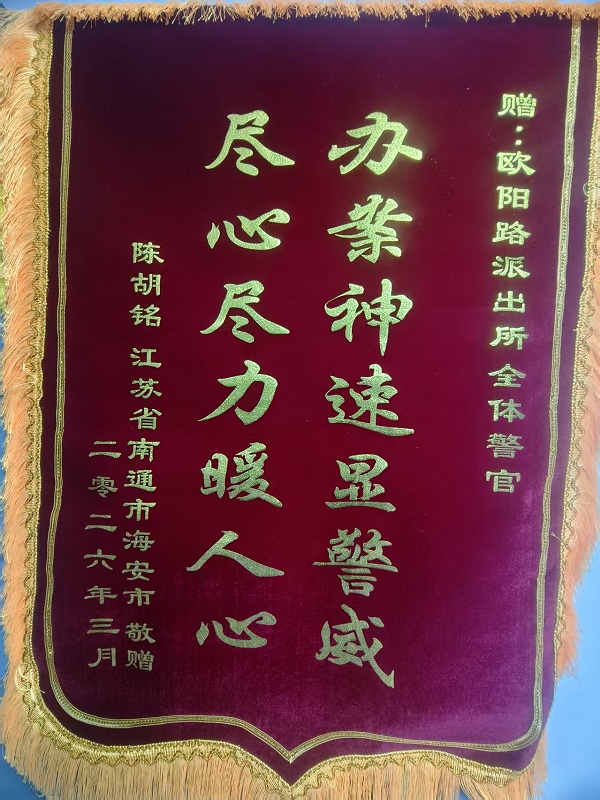 赠：欧阳路派出所全体警官
办案神速显警威
尽心尽力暖人心
陈胡铭 江苏省南通市海安市 敬赠
二零二六年三月